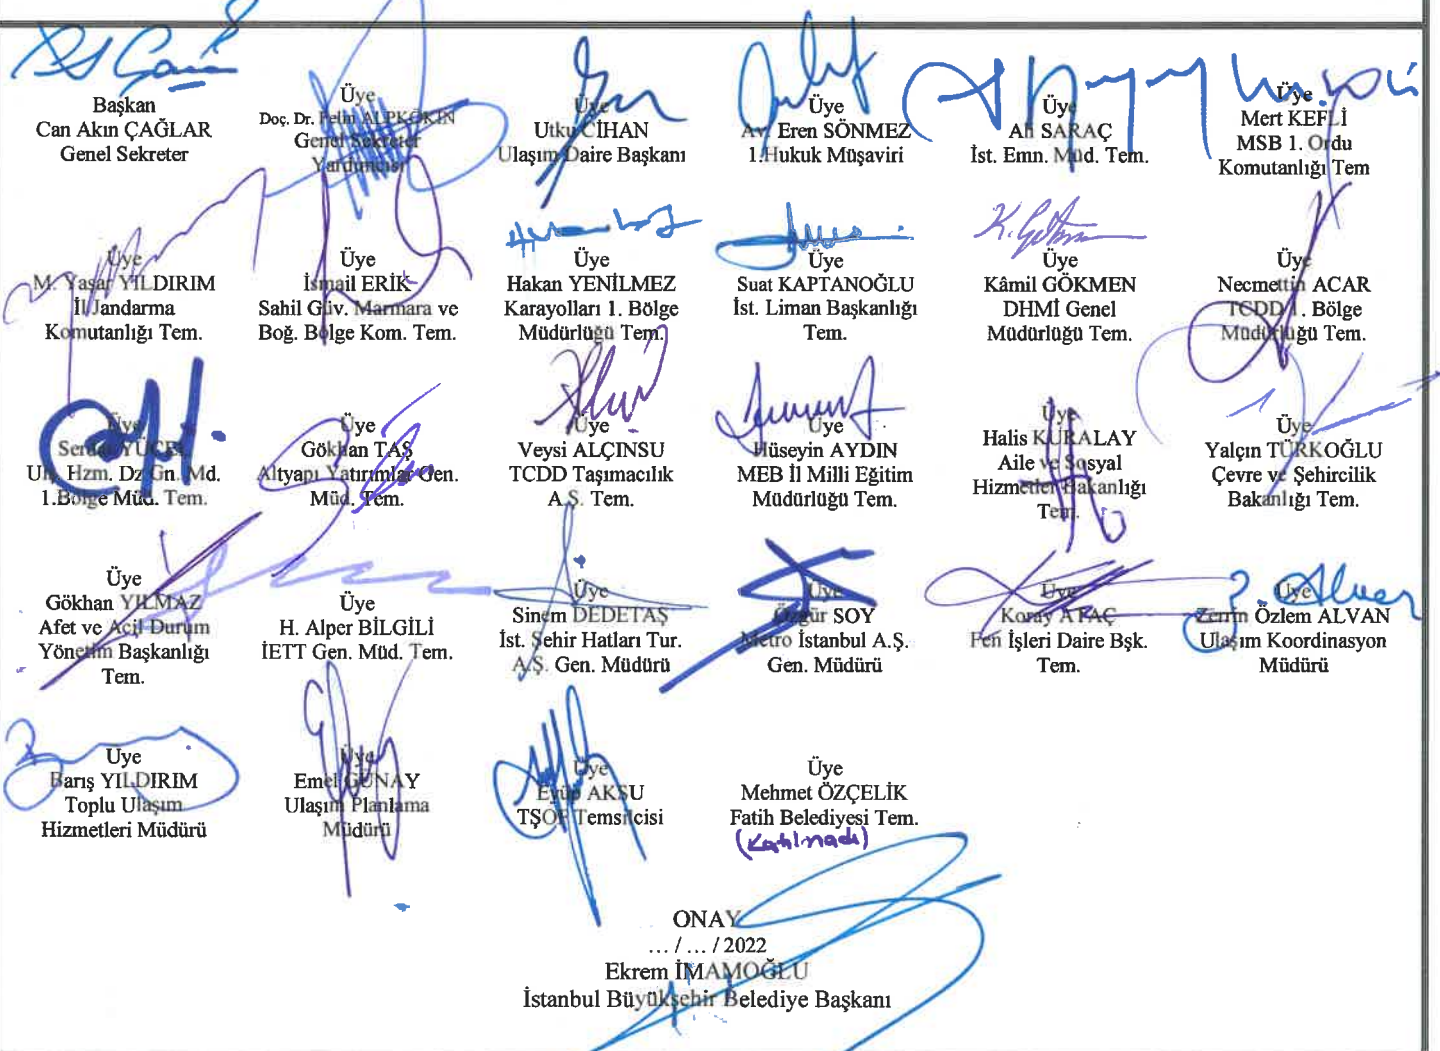 Başkan
Can Akın ÇAĞLAR
Genel Sekreter
Üye
Doç. Dr. Pelin ALPKÖKİN
Genel Sekreter
Yardımcısı
Üye
Utku CİHAN
Ulaşım Daire Başkanı
Üye
Av. Eren SÖNMEZ
1.Hukuk Müşaviri
Üye
Ali SARAÇ
İst. Emn. Müd. Tem.
Üye
Mert KEFLİ
MSB 1. Ordu
Komutanlığı Tem
Üye
M. Yaşar YILDIRIM
İl Jandarma
Komutanlığı Tem.
Üye
İsmail ERİK
Sahil Güv. Marmara ve
Boğ. Bölge Kom. Tem.
Üye
Hakan YENİLMEZ
Karayolları 1. Bölge
Müdürlüğü Tem.
Üye
Suat KAPTANOĞLU
İst. Liman Başkanlığı
Tem.
K. Gökmen
Üye
Kâmil GÖKMEN
DHMİ Genel
Müdürlüğü Tem.
Üye
Necmettin ACAR
TCDD 1. Bölge
Müdürlüğü Tem.
Üye
Serdar YÜCEL
Ul. Hzm. Dz Gn. Md.
1.Bölge Müd. Tem.
Üye
Gökhan TAŞ
Altyapı Yatırımlar Gen.
Müd. Tem.
Üye
Veysi ALÇINSU
TCDD Taşımacılık
A.Ş. Tem.
Üye
Hüseyin AYDIN
MEB İl Milli Eğitim
Müdürlüğü Tem.
Üye
Halis KURALAY
Aile ve Sosyal
Hizmetler Bakanlığı
Tem.
Üye
Yalçın TÜRKOĞLU
Çevre ve Şehircilik
Bakanlığı Tem.
Üye
Gökhan YILMAZ
Afet ve Acil Durum
Yönetim Başkanlığı
Tem.
Üye
H. Alper BİLGİLİ
İETT Gen. Müd. Tem.
Üye
Sinem DEDETAŞ
İst. Şehir Hatları Tur.
A.Ş. Gen. Müdürü
Üye
Özgür SOY
Metro İstanbul A.Ş.
Gen. Müdürü
Üye
Koray ATAÇ
Fen İşleri Daire Bşk.
Tem.
Üye
Zerrin Özlem ALVAN
Ulaşım Koordinasyon
Müdürü
Üye
Barış YILDIRIM
Toplu Ulaşım
Hizmetleri Müdürü
Üye
Emel GÜNAY
Ulaşım Planlama
Müdürü
Üye
Eyüp AKSU
TŞOF Temsilcisi
Üye
Mehmet ÖZÇELİK
Fatih Belediyesi Tem.
(Katılmadı)
ONAY
... / ... / 2022
Ekrem İMAMOĞLU
İstanbul Büyükşehir Belediye Başkanı